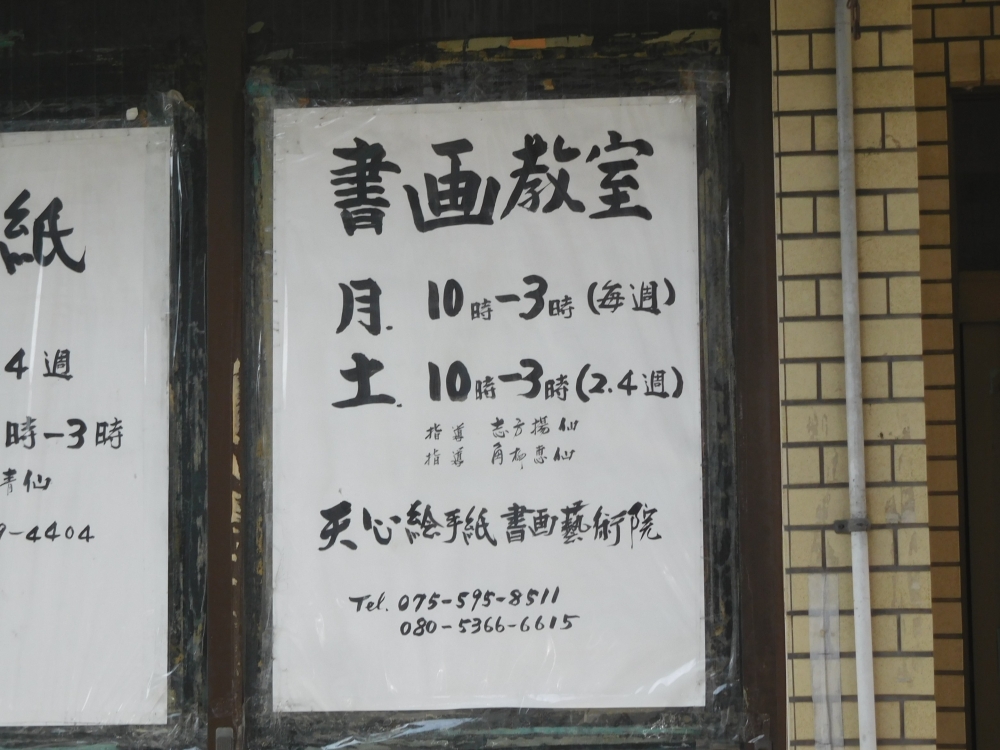 紙
4週
時-3時
青仙
9-4404
書画教室
月. 10時-3時(毎週)
土. 10時-3時(2.4週)
指導 志方揚仙
指導 角柳恵仙
天心絵手紙書画藝術院
Tel. 075-595-8511
080-5366-6615